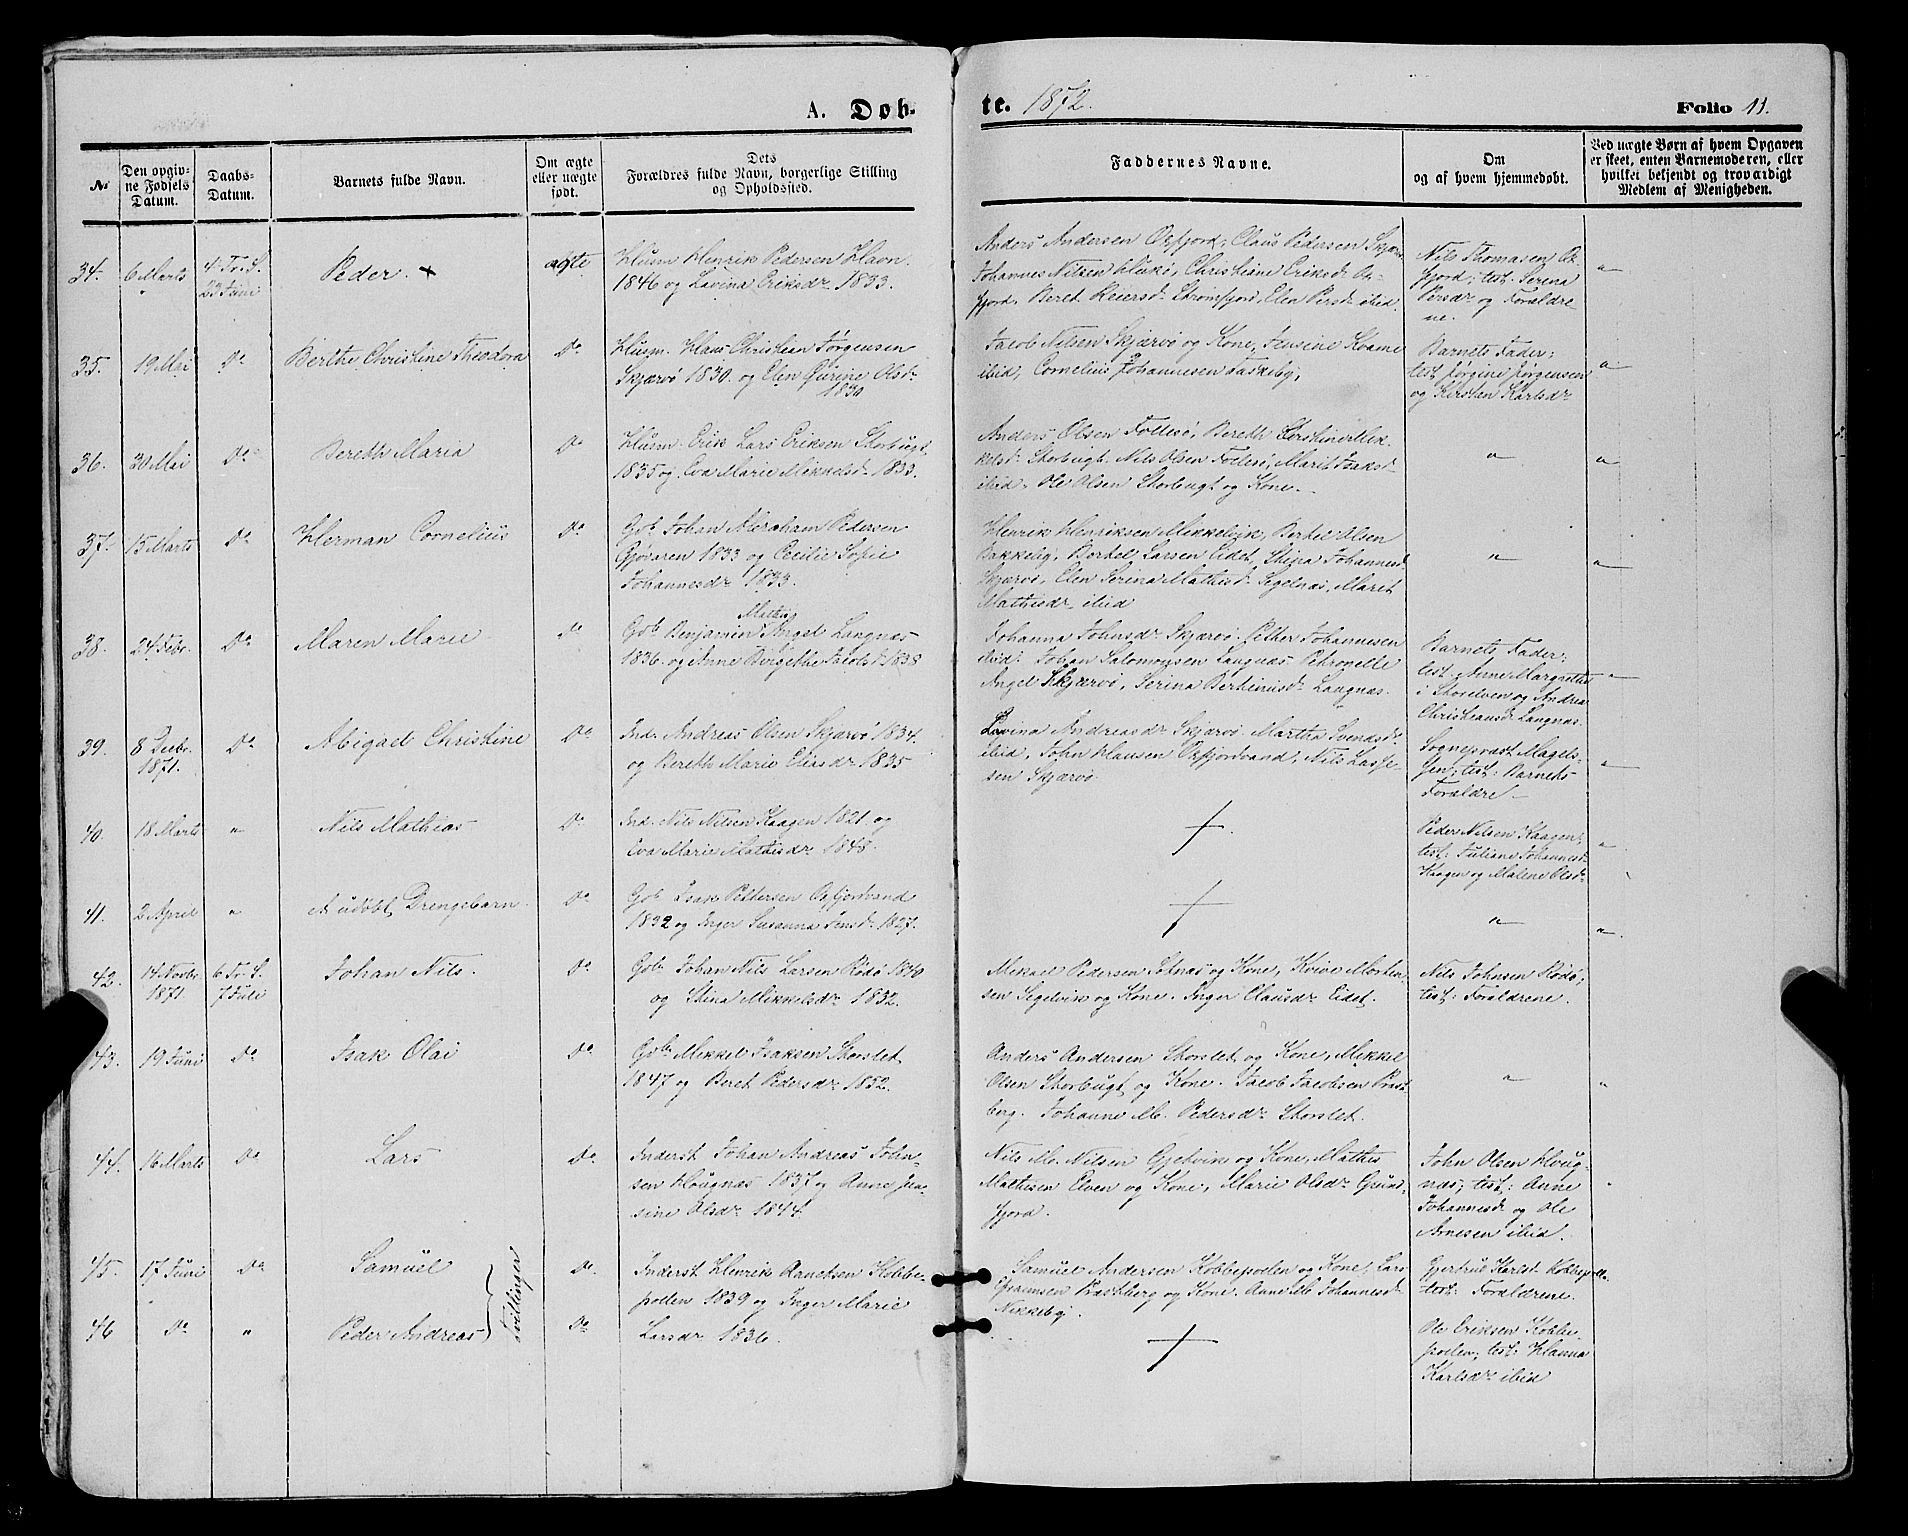 A. Døb-
te. 1872.
Folio 11.
No
Den opgiv-
ne Fødsels
Datum.
Daabs-
Datum.
Barnets fulde Navn.
Om ægte
eller uægte
født.
Dets
Forældres fulde Navn, borgerlige Stilling
og Opholdssted.
Faddernes Navne.
Om
og af hvem hjemmedøbt.
Ved uægte Børn af hvem Opgaven
er skeet, enten Barnemoderen, eller
hvilket bekjendt og troværdigt
Medlem af Menigheden.
34. 6 Marts 4. Tr. S.
23 Juni
Peder. +
ægte
Husm Henrik Pedersen Havn.
1846 og Lavina Eriksdr 1833.
Anders Andersen Oxfjord, Claus Pedersen
Johannes Nilsen, Christine Eriksd Ox-
fjord. Beret Reiersd. Strømfjord, Elen Persd. ibid.
Nils Thomasen Ox-
fjord; test. Serina
Persdr og Forældre
ne.
"
35. 19 Mai Do
Berthe Christine Theodora
Do
Husm. Hans Christian Jørgensen
Skjærvø 1830. og Elen Olsdr
1830
Jacob Nilsen Skjærvø og Kone, Jensine Kvame
ibid, Cornelius Johannesen Taskeby,
Barnets Fader;
test Jørgine Jørgensen
og Kirsten Karlsdr
"
36. 30 Mai Do
Bereth Maria
Do
Husm. Erik Lars Eriksen Storbugt
1835 og Eva Marie Mikkelsd. 1833.
Anders Olsen Follesø, Bereth Kerstine Mik-
kelsd. Storbugt. Nils Olsen Follesø, Marit Isaksd
ibid. Ole Olsen Storbugt og Kone.
"
"
37. 15 Marts Do
Herman Cornelius
Do
Gdb Johan Abraham Pedersen
Gjøvaren 1833 og Cecilie Sofie
Johannesdr 1833.
Henrik Henriksen Mikkelvik, Berthel Olsen
Bakkeby, Berthel Larsen Eidet, Stina Johannesd
Skjærvø, Elen Serina Mathisd. Segelnæs, Maret
Mathisdr ibid
"
"
38. 24 Febr. Do
Maren Marie
Do
Mathis
Gdb Benjamin Angel Langnæs
1836. og Anne Birgethe Jacobsd 1838
Johanna Johnsdr Skjærvø. Pether Johannesen
ibid. Johan Salomonsen Langnæs Petronelle
Angel Skjærvø, Serina Berthinusd. Langnæs.
Barnets Fader;
test. Anne Margrethe
i Storelven og Andrea
Christiansd. Langnæs.
"
39. 8 Decbr.
1871. Do
Abigael Christine
Do
Ind. Andreas Olsen Skjærvø 1834.
og Bereth Marie Eliasdr 1835
Lavina Andreasdr Skjærvø. Martha Svendsd.
ibid, John Hansen Oxfjordvand, Nils Lasse-
sen Skjærvø
Sogneprast Magels-
sen; test: Barnets
Forældre
"
40. 18 Marts "
Nils Mathias
Do
Ind. Nils Nilsen Kaagen 1821. og
Eva Marie Mathisdr 1848.
+
Peder Nilsen Kaagen;
test: Juliane Johannesd
Kaagen og Malene Olsdr
"
41. 2 April "
et udøbt Drengebarn
Do
Gdb Isak Pettersen Oxfjordvand
1832 og Inger Susanna Jensd. 1827.
+
"
"
42. 14 Novbr
1871. 6 Tr. S.
7 Juli
Johan Nils.
Do
Gdb. Johan Nils Larsen Rødø 1840
og Stina Mikkelsdr 1832.
Mikael Pedersen Sotnæs og Kone, Morten-
sen Segelvik og Kone. Inger Clausdr Eidet.
Nils Johnsen Rødø;
test: Forældrene.
43. 19 Juni Do
Isak Olai
Do
Gdb. Mikkel Isaksen Storslet
1847 og Beret Pedersdr 1852.
Anders Andersen Storslet og Kone, Mikkel
Olsen Storbugt og Kone. Jacob Jacobsen Præst-
berg. Johanne M. Pedersdr Storslet.
"
"
44. 16 Marts Do
Lars
Do.
Inderst Johan Andreas John-
sen Hougnæs 1837 og Anne Jen-
sine Olsdr 1844.
Nils M. Nilsen Gjetvik og Kone, Mathis
Mathisen Elven og Kone, Marie Olsdr Grund-
fjord.
John Olsen Houg-
næs; test: Anne
Johannesd. og Ole
Arnesen ibid.
45. 17 Juni Do
Samuel
Tvillinger
Do.
Inderst Henrik Arnetsen Kobbe-
pollen 1839 og Inger Marie
Samuel Andersen Kobbepollen og Kone, Lars
Efraimsen Præstberg og Kone. Anne M. Johannesd.
Nikkeby.
Gjertrud Karlsd. Kobbepolle
test: Forældrene.
46 Do "
Peder Andreas
Do
Larsdr 1836.
+
Ole Eriksen Kobbe-
pollen; test: Hanna
Karlsdr ibid